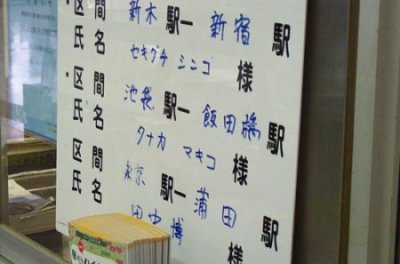 ・区間 新木 駅ー新宿 駅
氏名 セキグチ シンコ 様
・区間 池袋 駅ー飯田橋 駅
氏名 タナカ マキコ 様
・区間 駅ー蒲田 駅
氏名 田中 博 様